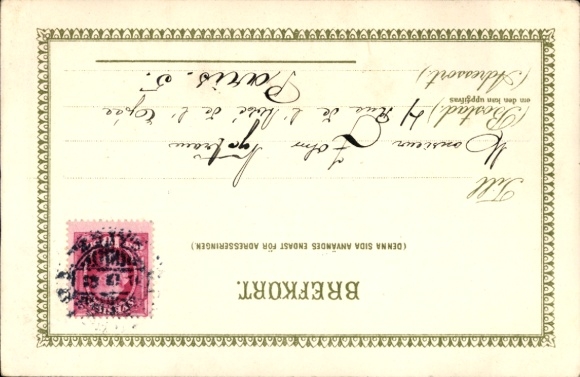 BREFKORT.
(DENNA SIDA ANVÄNDES ENDAST FÖR ADRESSERINGEN.)
Till
Monsieur John
(Bostad) 4 Rue de l'Abbé de l'Epée
om den kan uppgifvas
(Adressort.) Paris. 5.